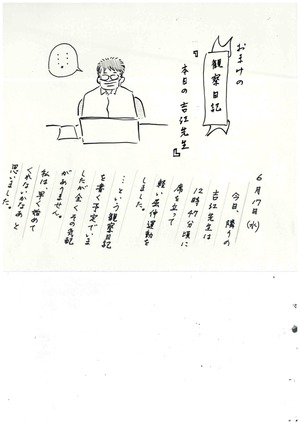 おまけの
観察日記
『本日の吉江先生』
・・・・・・
6月17日(水)
今日、隣りの
吉江先生は
12時47分頃に
席を立って
軽い屈伸運動を
しました。
…という観察日記
を書く予定でいま
したが全くその気配
がありません。
私は早く始めて
くれないかなあと
思いました。